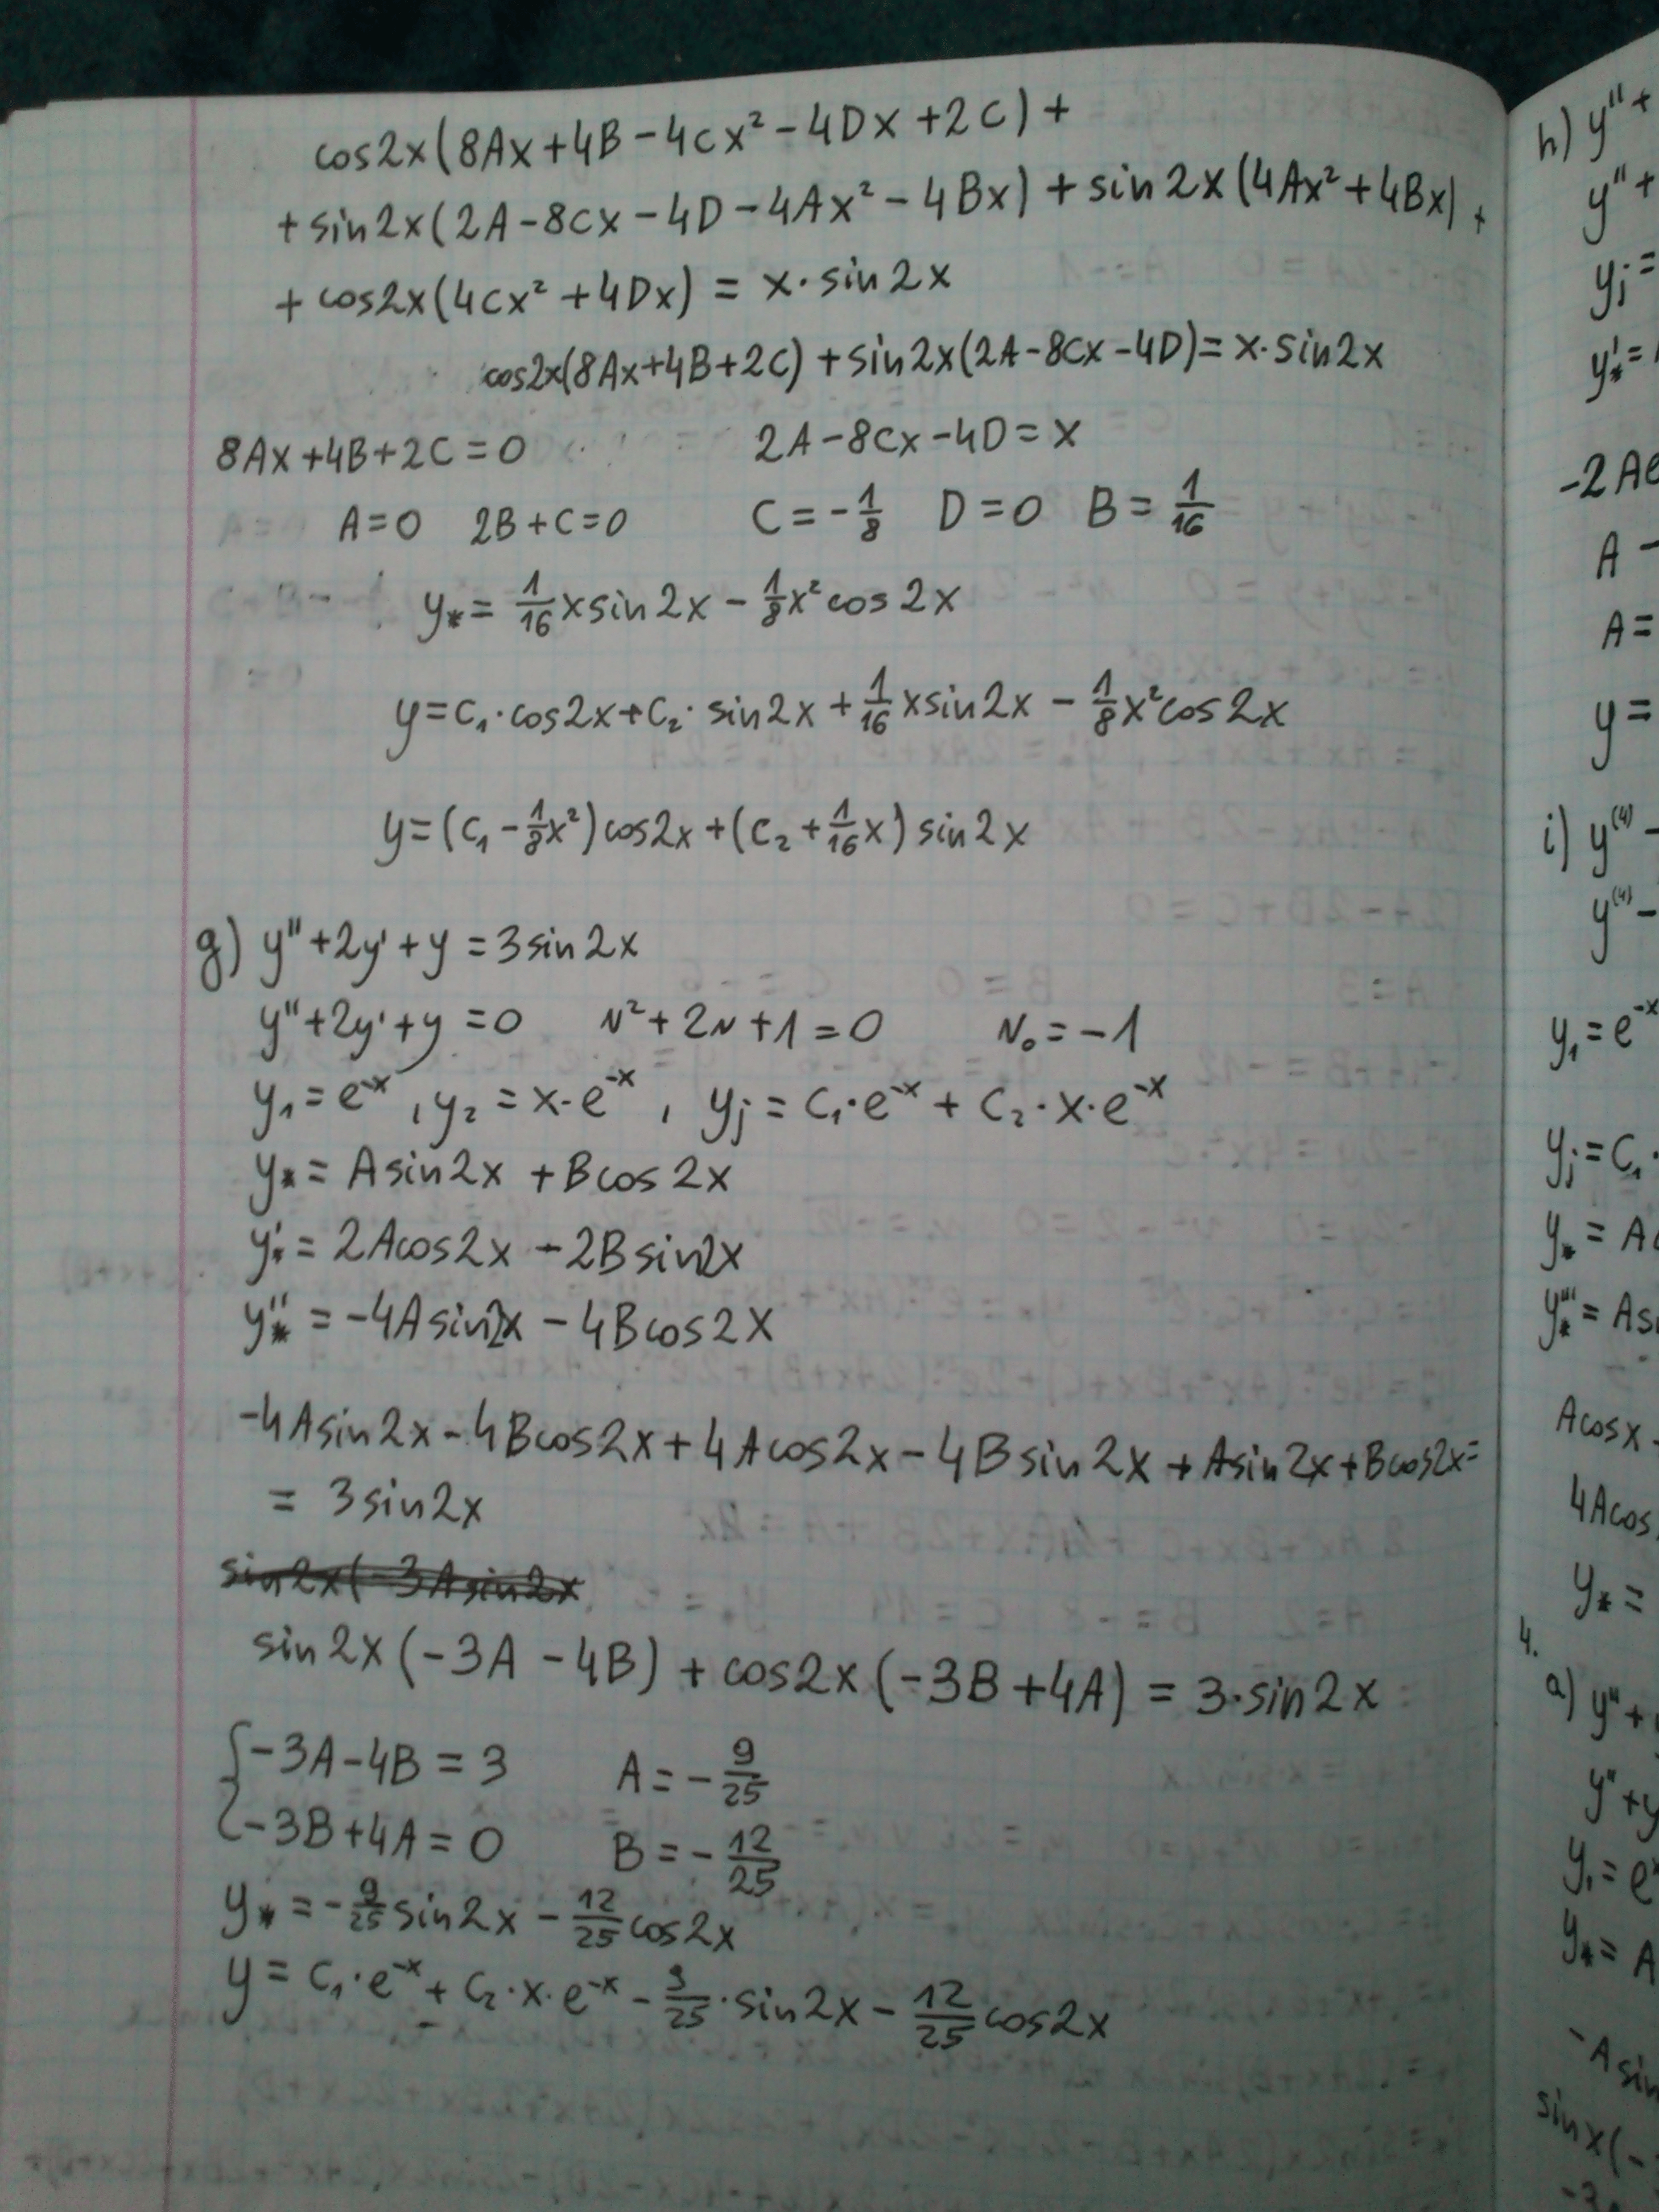 cos2x(8Ax+4B-4Cx²-4Dx+2C)+
+sin2x(2A-8Cx-4D-4Ax²-4Bx)+sin2x(4Ax²+4Bx)+
+cos2x(4Cx²+4Dx) = x·sin2x
cos2x(8Ax+4B+2C)+sin2x(2A-8Cx-4D)=x·sin2x
8Ax+4B+2C=0 2A-8Cx-4D=x
A=0 2B+C=0 C=-1/8 D=0 B=1/16
y*=1/16xsin2x-1/8x²cos2x
y=C₁·cos2x+C₂·sin2x+1/16xsin2x-1/8x²cos2x
y=(C₁-1/8x²)cos2x+(C₂+1/16x)sin2x
g) y''+2y'+y=3sin2x
y''+2y'+y=0 r²+2r+1=0 r₀=-1
y₁=e⁻ˣ, y₂=x·e⁻ˣ, yj=C₁·e⁻ˣ+C₂·x·e⁻ˣ
y*=Asin2x+Bcos2x
y*'=2Acos2x-2Bsin2x
y*''=-4Asin2x-4Bcos2x
-4Asin2x-4Bcos2x+4Acos2x-4Bsin2x+Asin2x+Bcos2x=
= 3sin2x
sin2x(-3Asin2x
sin2x(-3A-4B)+cos2x(-3B+4A)=3·sin2x
{-3A-4B=3 A=-9/25
-3B+4A=0 B=-12/25
y*=-9/25sin2x-12/25cos2x
y=C₁·e⁻ˣ+C₂·x·e⁻ˣ-9/25·sin2x-12/25cos2x
h) y''+
y''+
yj=
y*'=
-2Ae
A-
A=
y=
i) y⁽⁴⁾-
y⁽⁴⁾-
y₁=e⁻ˣ
yj=C₁·
y*=A
y*'''=As
Acosx-
4Acos
y*=
4.
a) y''+
y''+y
y₁=e
y*=A
-Asin
sinx(-